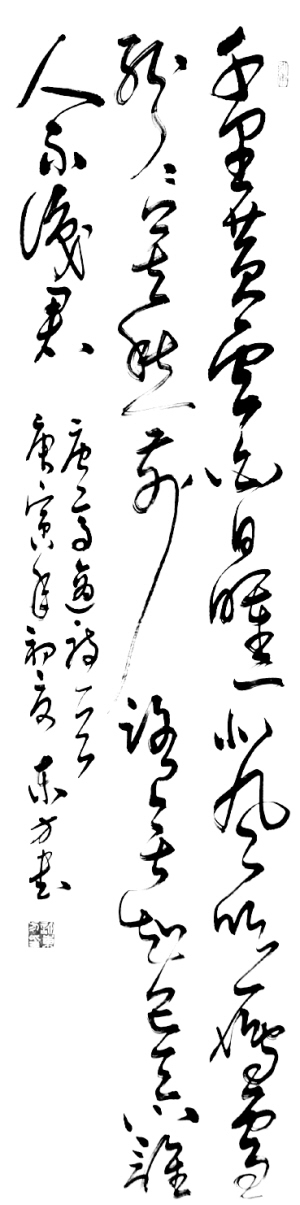 千里黄雲白日曛北風吹雁雪
紛々莫愁前路無知己天下誰
人不識君
唐高適詩一首
庚寅年初夏 東方書